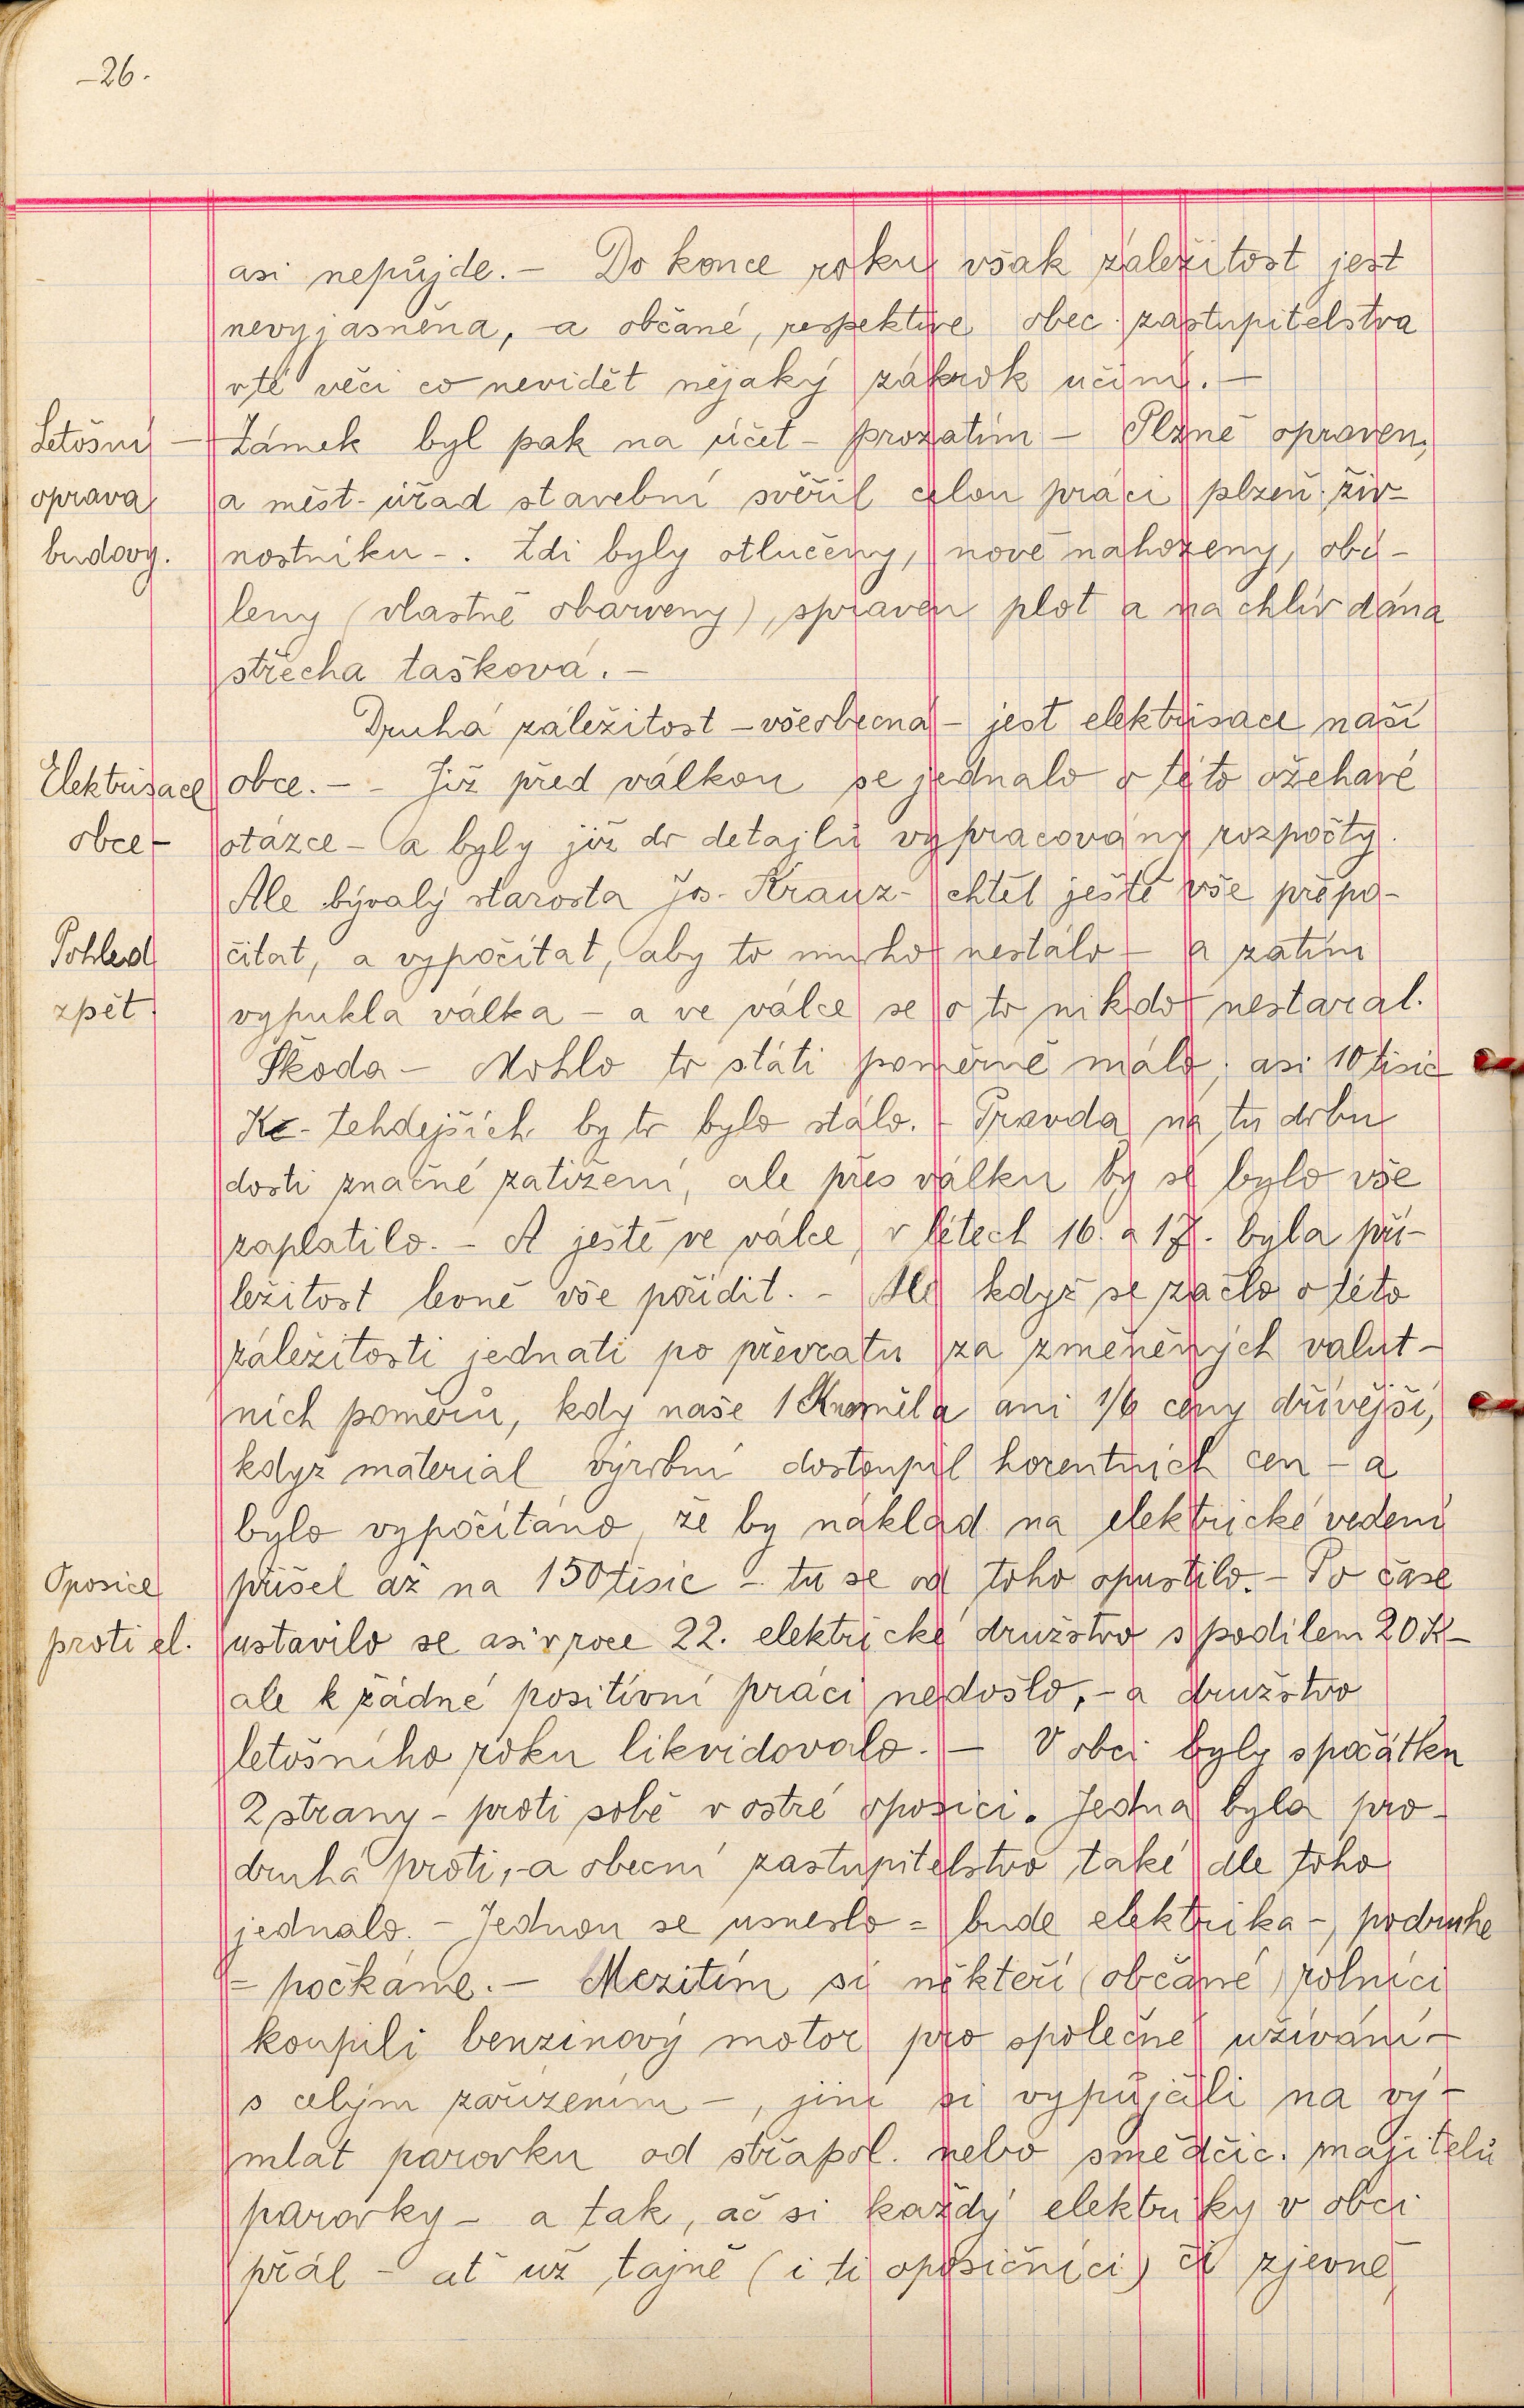 -26.
asi nepůjde. - Do konce roku však záležitost jest
nevyjasněna, - a občané, respektive obec. zastupitelstva
v té věci co nevidět nějaký zákrok učiní. -
Letošní - Zámek byl pak na účet - prozatím - Plzně opraven,
oprava a měst. úřad stavební svěřil celou práci plzeň. živ-
budovy. nostníku -. Zdi byly otlučeny, nově nahozeny, obí-
leny (vlastně obarveny), spraven plot a na chlív dána
střecha tašková. -
Druhá záležitost - všeobecná - jest elektrisace naší
Elektrisace obce. - - Již před válkou se jednalo o této ožehavé
obce - otázce - a byly již do detajlů vypracovány rozpočty.
Ale bývalý starosta Jos. Krauz - chtěl ještě vše přepo-
Pohled čítat, a vypočítat, aby to mnoho nestálo - a zatím
zpět. vypukla válka - a ve válce se o to nikdo nestaral.
Škoda - Mohlo to státi poměrně málo, asi 10 tisíc
Kč - tehdejších by to bylo stálo. - Pravda na tu dobu
dosti značné zatížení, ale přes válku by se bylo vše
zaplatilo. - A ještě ve válce, v létech 16. a 17. byla pří-
ležitost levně vše pořídit. - Ale když se začlo o této
záležitosti jednati po převratu za změněných valut-
ních poměrů, kdy naše 1 Kna měla ani 1/6 ceny dřívější,
když materiál výrobní dostoupil horentních cen - a
bylo vypočítáno, že by náklad na elektrické vedení
Oposice přišel až na 150 tisíc - tu se od toho opustilo. - Po čase
proti el. ustavilo se asi v roce 22. elektrické družstvo s podílem 20 K -
ale k žádné positivní práci nedošlo, - a družstvo
letošního roku likvidovalo. - V obci byly spočátku
2 strany - proti sobě v ostré oposici. Jedna byla pro -
druhá proti, - a obecní zastupitelstvo také dle toho
jednalo. - Jednou se usneslo = bude elektrika -, podruhé
= počkáme. - Mezitím si někteří (občané) rolníci
koupili benzinový motor pro společné užívání -
s celým zařízením -, jiní si vypůjčili na vý-
mlat parovku od střapol. nebo smědčic. majitelů
parovky - a tak, ač si každý elektriky v obci
přál - ať už tajně (i ti oposičníci) či zjevně